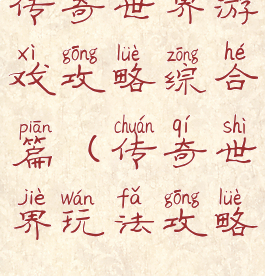 传奇世界游
xì gōng lüè zōng hé
戏攻略综合
piān chuán qí shì
篇(传奇世
jiè wán fǎ gōng lüè
界玩法攻略